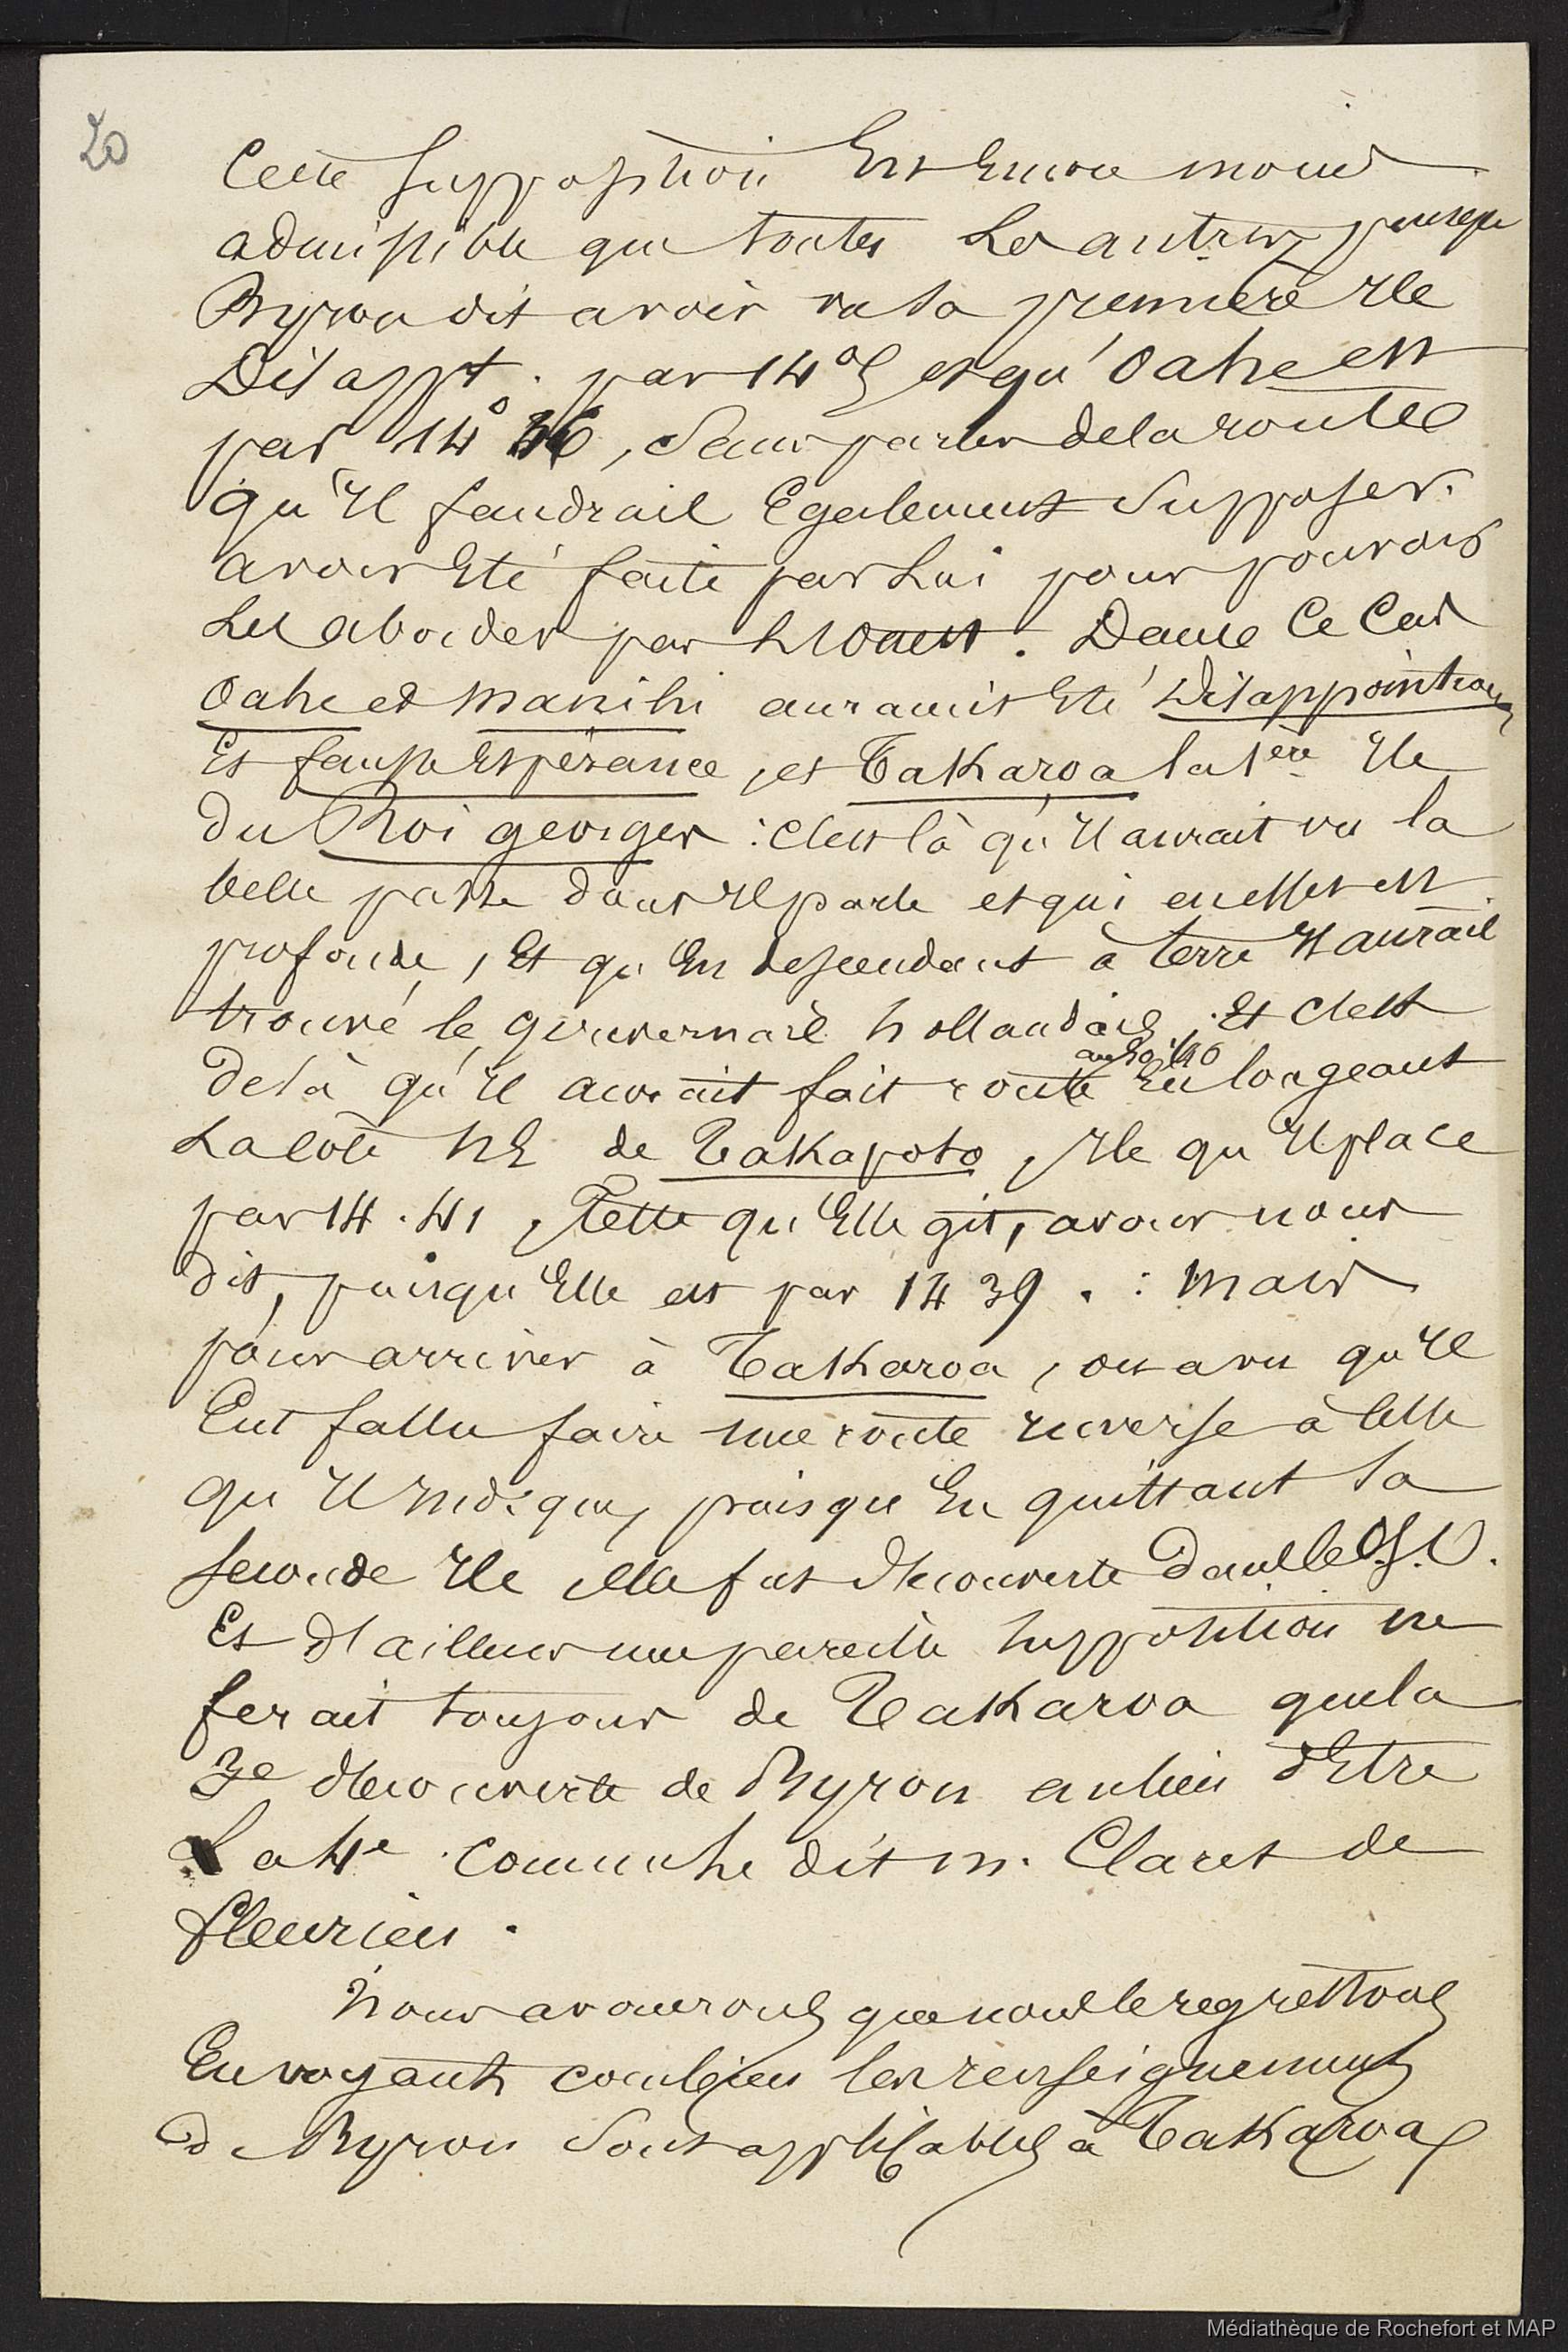 20
Cette supposition est encore moins
admissible que toutes les autres, puisque
Byron dit avoir vu sa première Ile
Disappt. par 14°5 et qu'Oahe est
par 14° 36, sans parler de la route
qu'il faudrait également supposer
avoir été faite par lui pour pouvoir
les aborder par l'Ouest. Dans ce cas
Oahe et Manihi auraient été Disappointment
et fausse espérance, et Takaroa la 1ère Ile
du Roi georges : c'est là qu'il aurait vu la
belle passe dont il parle et qui en effet est
profonde, et qu'en descendant à terre il aurait
trouvé le gouvernail hollandais ; et c'est
de là qu'il aurait fait route en longeant
la côte NE de Takapoto, Ile qu'il place
par 14.41, telle qu'elle git, avons nous
dit, puisqu'elle est par 14 39. : mais
pour arriver à Takaroa, on a vu qu'il
eut fallu faire une route inverse à celle
qu'il indique, puisque en quittant sa
seconde Ile elle fut découverte dans le O.S.O.
Et d'ailleurs une pareille supposition ne
ferait toujours de Takaroa que la
3e découverte de Byron au lieu d'être
La 4e comme le dit M. Claret de
fleurieu.
Nous avouerons que nous le regrettons
en voyant combien les renseignements
de Byron sont applicables à Takaroa
Médiathèque de Rochefort et MAP